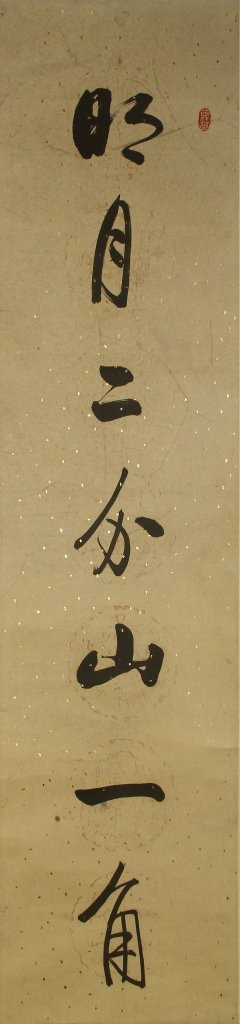 明月二分山一角